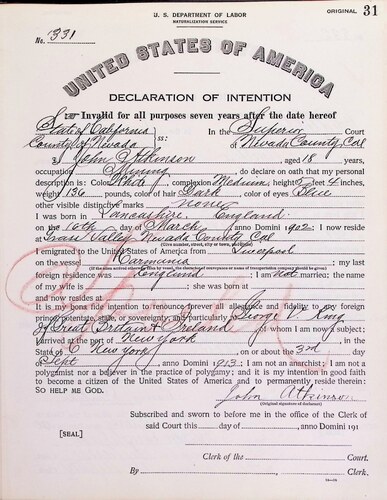 U. S. DEPARTMENT OF LABOR
NATURALIZATION SERVICE
ORIGINAL 31
No. 331
UNITED STATES OF AMERICA
DECLARATION OF INTENTION
Invalid for all purposes seven years after the date hereof
State of California
County of Nevada ss: In the Superior Court of Nevada County, Cal
I, John Atkinson, aged 18 years,
occupation Mining, do declare on oath that my personal
description is: Color White, complexion Medium, height 5 feet 4 inches,
weight 136 pounds, color of hair Dark, color of eyes Blue
other visible distinctive marks none
I was born in Lancashire, England
on the 10th day of March, anno Domini 1902; I now reside
at Grass Valley Nevada County Cal
I emigrated to the United States of America from Liverpool
on the vessel Carmania; my last
foreign residence was England. I am not married; the name
of my wife is ; she was born at
and now resides at
It is my bona fide intention to renounce forever all allegiance and fidelity to any foreign
prince, potentate, state, or sovereignty, and particularly to George V King
of Great Britain & Ireland, of whom I am now a subject;
I arrived at the port of New York, in the
State of New York, on or about the 3rd day
of Sept, anno Domini 1913; I am not an anarchist; I am not a
polygamist nor a believer in the practice of polygamy; and it is my intention in good faith
to become a citizen of the United States of America and to permanently reside therein:
SO HELP ME GOD.
John Atkinson
(Original signature of declarant)
Subscribed and sworn to before me in the office of the Clerk of
said Court this day of , anno Domini 191
[SEAL]
Clerk of the Court.
By , Clerk.